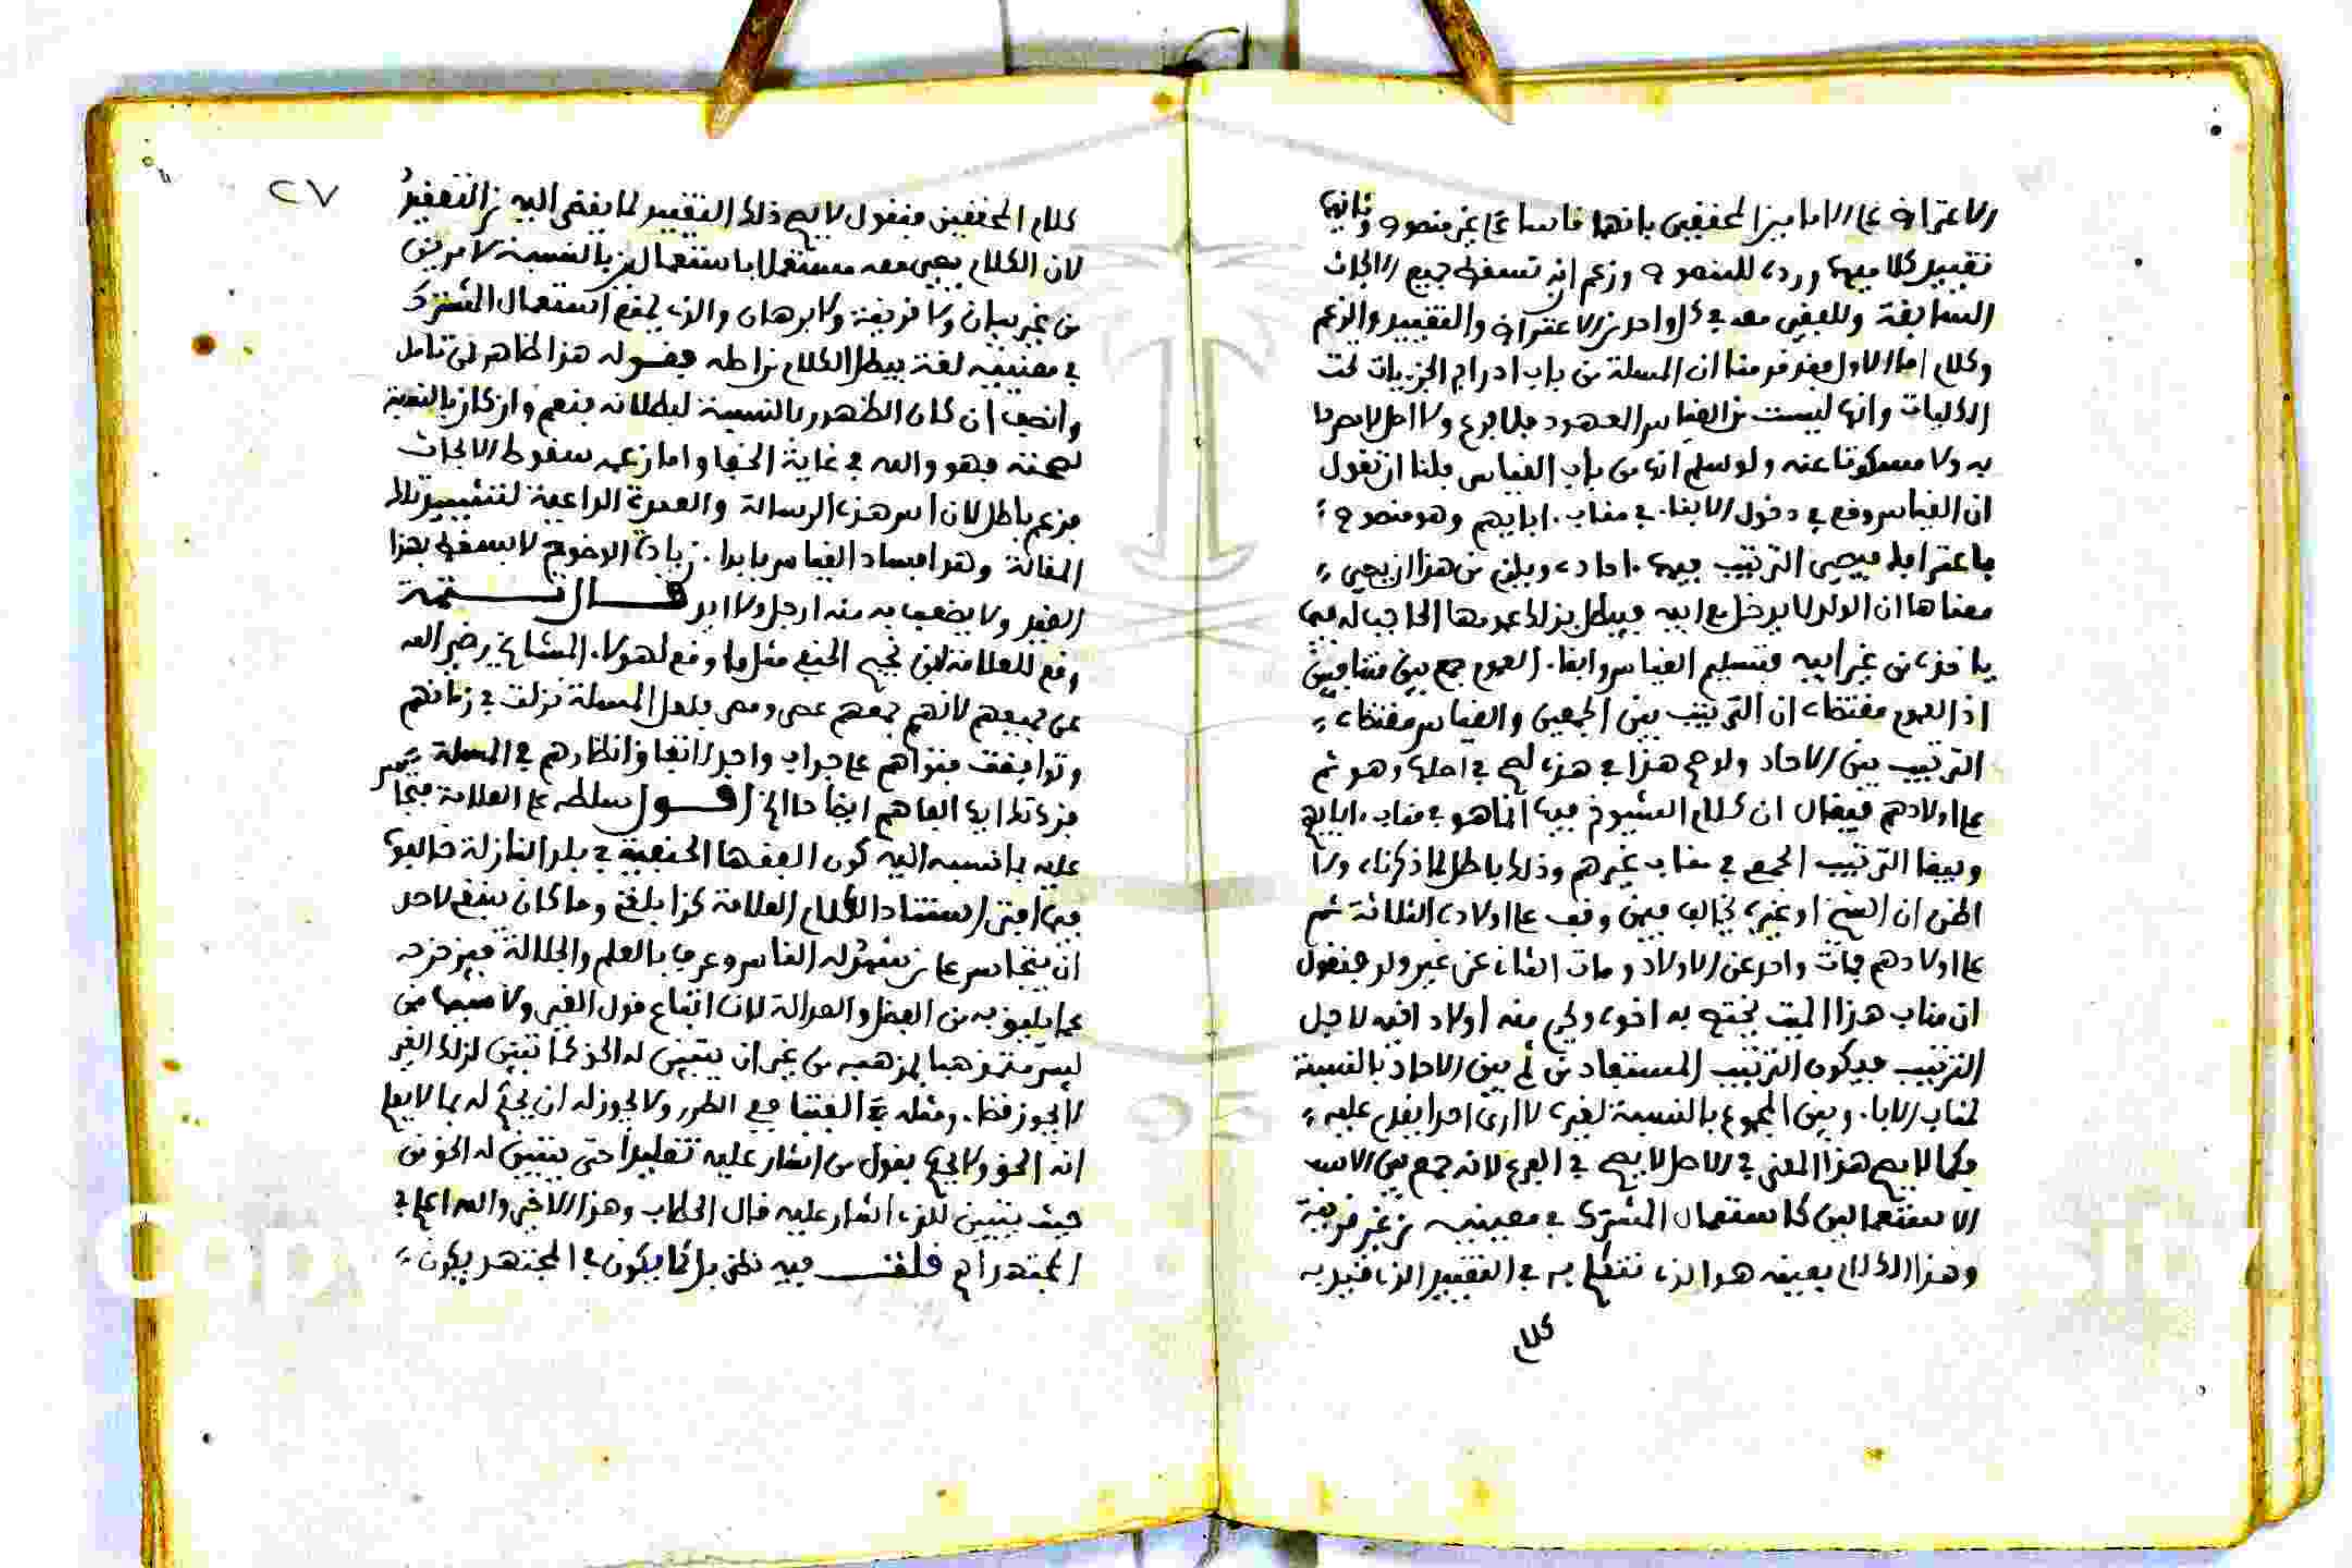 الاعتراض على الامامين المحققين بانهما قاسا على غير منصوص وثانيها
تقييد كلاميهما ورده للمنصوص وزعم انه تسقط جميع الابحاث
السابقة وللفقير معه في كل واحد من الاعتراض والتقييد والزعم
وكلام اما الاول فقد قدمنا ان المسلة من باب ادراج الجزيات تحت
الكليات وانها ليست من القياس المعهود فلا فرع ولا اصل لا مصرحا
به ولا مسكوتا عنه ولو سلم انها من باب القياس فلنا ان نقول
ان القياس وقع في دخول الابنا في مناب ابايهم وهو منصوص
معناها ان الولد لا يدخل مع ابيه فيبطل بذلك عمومها الحاجب له فيما
ياخذه من غير ابيه فتسليم القياس وابقا العموم جمع بين متنافيين
اذ العموم مقتضاه ان الترتيب بين الجمعين والقياس مقتضاه
الترتيب بين الاحاد ولو صح هذا في هذه لصح في اصلها وهو ثم
على اولادهم فيقال ان كلام الشيوخ فيها انما هو في مناب ابايهم
ويبقا الترتيب الجمع في مناب غيرهم وذلك باطل لما ذكرناه ولا
اظن ان الشيخ او غيره يخالف فيمن وقف على اولاده الثلاثة ثم
على اولادهم فمات واحد عن الاولاد ومات الثاني عن غير ولد فنقول
ان مناب هذا الميت يختص به اخوه ولا شي منه اولاد اخيه لاجل
الترتيب فيكون الترتيب المستفاد من ثم بين الاحاد بالنسبة
لمناب الابا وبين المجموع بالنسبة لغيره لا ارى احدا يقدم عليه
فكما لا يصح هذا المعنى في الاصل لا يصح في الفرع لانه جمع بين
الاستعمالين كاستعمال المشترك في معنييه من غير قرينة
وهذا الكلام بعينه هو الذي نتكلم به في التقييد الذي قيد به
كلام
٢٧
كلام المحققين فنقول لا يصح ذلك التقييد لما يفضى اليه من التعقيد
لان الكلام يصير معه مستعملا باستعمالين بالنسبة لامرين
من غير بيان ولا قرينة ولا برهان والذي يمنع استعمال المشترك
في معنييه لغة يبطل الكلام من اصله فقوله هذا ظاهر لمن تامل
وانصف ان كان الظهور بالنسبة لبطلانه فنعم وان كان بالنسبة
لصحته فهو والله في غاية الخفا واما زعمه سقوط الابحاث
فزعم باطل لان اس هذه الرسالة والعمدة الداعية لتشييد تلك
المقالة وهو افساد القياس بابدا زيادة الاخوة لا يسقط بهذا
القيد ولا يضعف به منه ارجل ولا ايد قال تتمة
وقع للعلامة ابن نجيم الحنفي مثل ما وقع لهولاء المشايخ رضي الله
عن جميعهم لانهم جمعهم عصر ومصر فلعل المسلة نزلت في زمانهم
وتوافقت فتواهم على جواب واحد لاتفاق انظارهم في المسلة
اقول سلطه على العلامة فتجا
عليه بما نسبه اليه كون الفقها الحنفية في بلد النازلة خالفوا
فيما افتى استنادا لكلام العلامة كذا بلغني وما كان ينبغي لاحد
ان يتجاسر على من شهد له الناس وعرف بالعلم والجلالة فيزحزحه
عما يليق به من الفضل والعدالة لان اتباع قول الغير ولا سيما من
ليس متمذهبا بمذهبه من غير ان يتبين له الحق كما تبين لذلك الغير
لا يجوز قضاء ومثله الفتيا ففي الطرر ولا يجوز له ان يحكم له بما لا يعلم
انه الحق ولا يحكم بقول من اشار عليه تقليدا حتى يتبين له الحق من
حيث يتبين للذي اشار عليه قال الحطاب وهذا الاخير والله اعلم في
المجتهد اه قلت فيه نظر بل كما يكون في المجتهد يكون